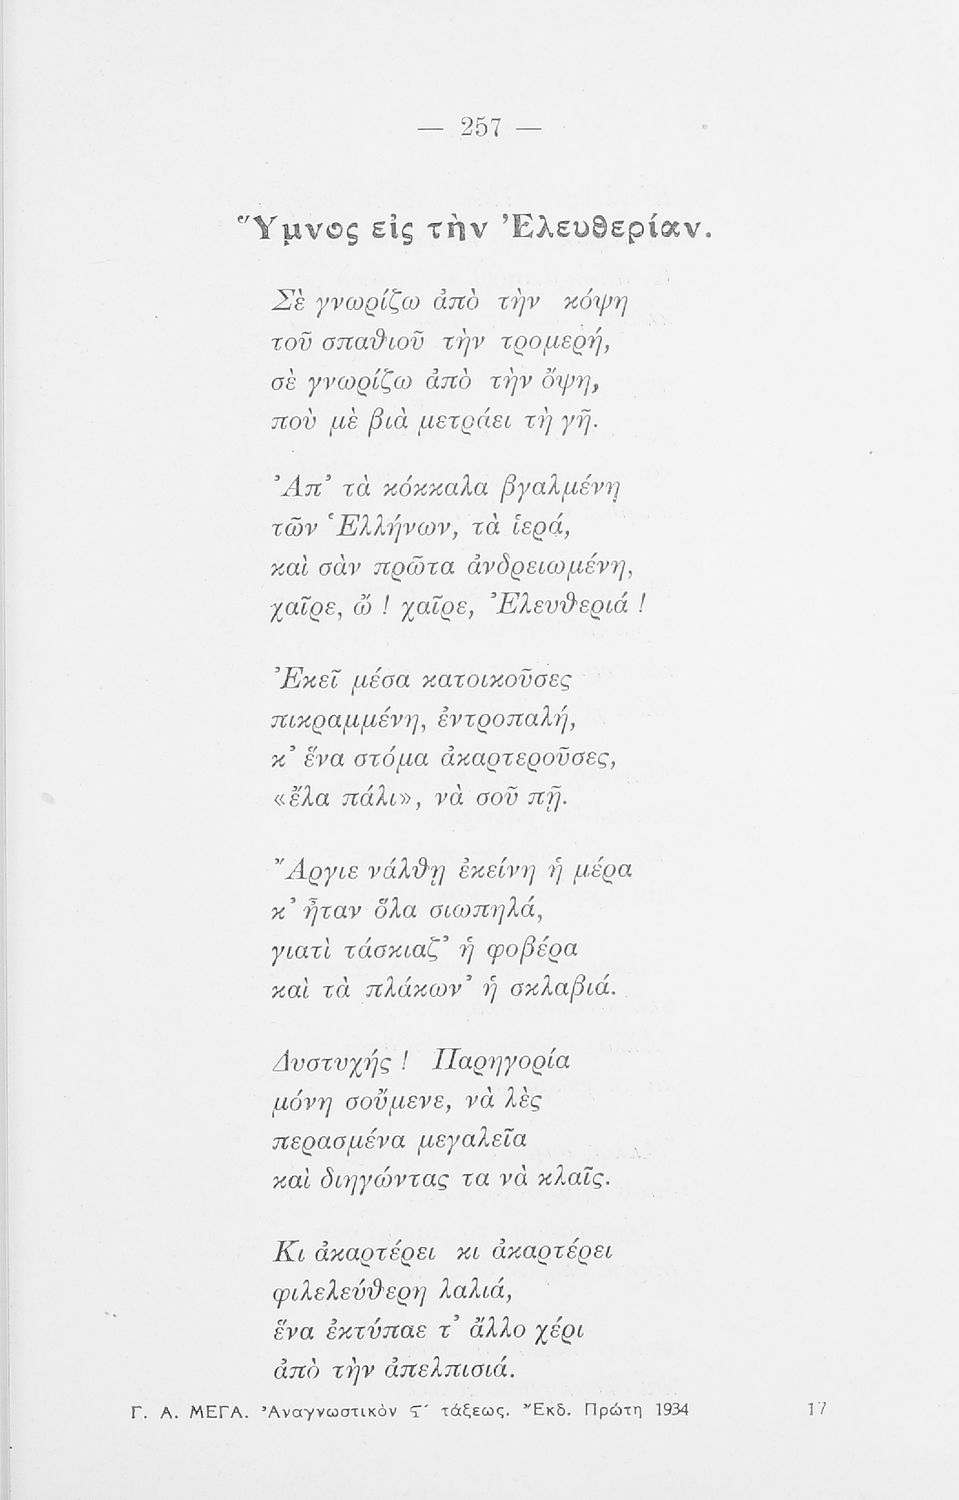 — 257 —
Ὕμνος εἰς τὴν Ἐλευθερίαν.
Σὲ γνωρίζω ἀπὸ τὴν κόψη
τοῦ σπαθιοῦ τὴν τρομερή,
σὲ γνωρίζω ἀπὸ τὴν ὄψη,
ποὺ μὲ βιὰ μετράει τὴ γῆ.
Ἀπ' τὰ κόκκαλα βγαλμένη
τῶν Ἑλλήνων, τὰ ἱερά,
καὶ σὰν πρῶτα ἀνδρειωμένη,
χαῖρε, ὤ ! χαῖρε, Ἐλευθεριά !
Ἐκεῖ μέσα κατοικοῦσες
πικραμμένη, ἐντροπαλή,
κ' ἕνα στόμα ἀκαρτεροῦσες,
«ἔλα πάλι», νὰ σοῦ πῇ.
Ἄργιε νάλθῃ ἐκείνη ἡ μέρα
κ' ἦταν ὅλα σιωπηλά,
γιατὶ τάσκιαζ' ἡ φοβέρα
καὶ τὰ πλάκων' ἡ σκλαβιά.
Δυστυχής ! Παρηγορία
μόνη σοὔμενε, νὰ λὲς
περασμένα μεγαλεῖα
καὶ διηγώντας τα νὰ κλαῖς.
Κι ἀκαρτέρει κι ἀκαρτέρει
φιλελεύθερη λαλιά,
ἕνα ἐκτύπαε τ' ἄλλο χέρι
ἀπὸ τὴν ἀπελπισιά.
Γ. Α. ΜΕΓΑ. Ἀναγνωστικὸν Ϛ' τάξεως. Ἔκδ. Πρώτη 1934 17